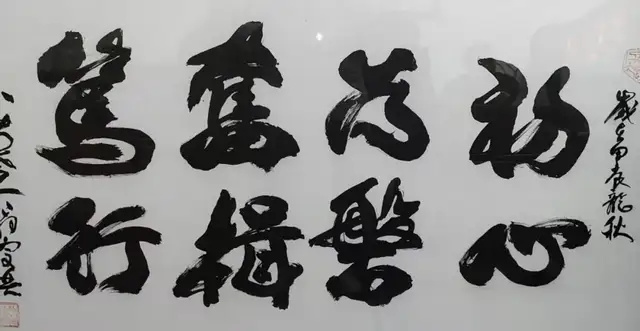 歲在甲辰龍秋
初心
为磐
奮楫
篤行